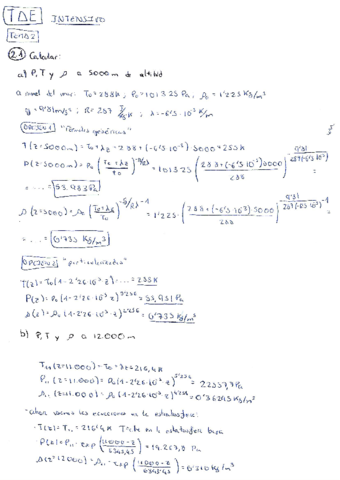 TDE INTENSIVO
TEMA 2
2.1 Calcular:
a) P, T y ρ a 5000 m de altitud
a nivel del mar: T₀ = 288K, P₀ = 101325 Pa, ρ₀ = 1'225 Kg/m³
g = 9'81 m/s²; R = 287 J/kg·K; λ = -6'5·10⁻³ K/m
OPCIÓN 1 "Fórmulas genéricas"
T(z=5000m) = T₀ + λz = 288 + (-6'5·10⁻³) 5000 = 255K
P(z=5000m) = P₀ (T₀+λz / T₀)^(-g/Rλ) = 101325 (288 + (-6'5·10⁻³)5000 / 288)^(-9'81 / 287(-6'5·10⁻³)) =
= .... = 53.983 Pa
ρ(z=5000) = ρ₀ (T₀+λz / T₀)^(-g/Rλ -1) = 1'225 · (288 + (-6'5·10⁻³) 5000 / 288)^(-9'81 / 287(-6'5·10⁻³) -1) =
= ... = 0'733 Kg/m³
OPCIÓN 2 "particularizadas"
T(z) = T₀ (1 - 2'26·10⁻⁵ z) .... = 255K
P(z) = P₀ (1 - 2'26·10⁻⁵ z)^5'256 = 53,951 Pa
ρ(z) = ρ₀ (1 - 2'26·10⁻⁵ z)^4'256 = 0'733 Kg/m³
b) P, T y ρ a 12.000 m
T₁₁ (z=11.000) = T₀ + λz = 216,4 K
P₁₁ (z=11.000) = P₀ (1 - 2'26·10⁻⁵ z)^5'256 = 22557,7 Pa
ρ₁₁ (z=11.000) = ρ₀ (1 - 2'26·10⁻⁵ z)^4'256 = 0'36295 Kg/m³
ahora usamos las ecuaciones en la estratosfera:
· T(z) = T₁₁ = 216'4 K T cte en la estratosfera baja
· P(z) = P₁₁ · exp (11000 - z / 6343,45) = 19.267,8 Pa
ρ(z=12000) = ρ₁₁ · exp (11000 - z / 6343'45) = 0'310 Kg/m³